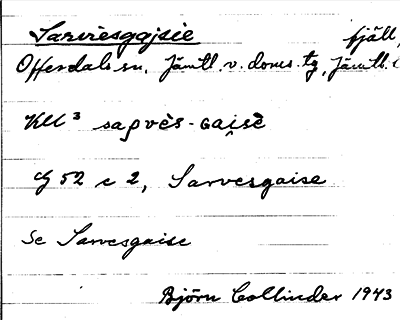 Sarvesgajsie fjäll,
Offerdals sn. Jämtl. v. doms. tg, Jämtl.
KM³
G 52 c 2, Sarvesgaise
Se Sarvesgaise
Björn Collinder 1943